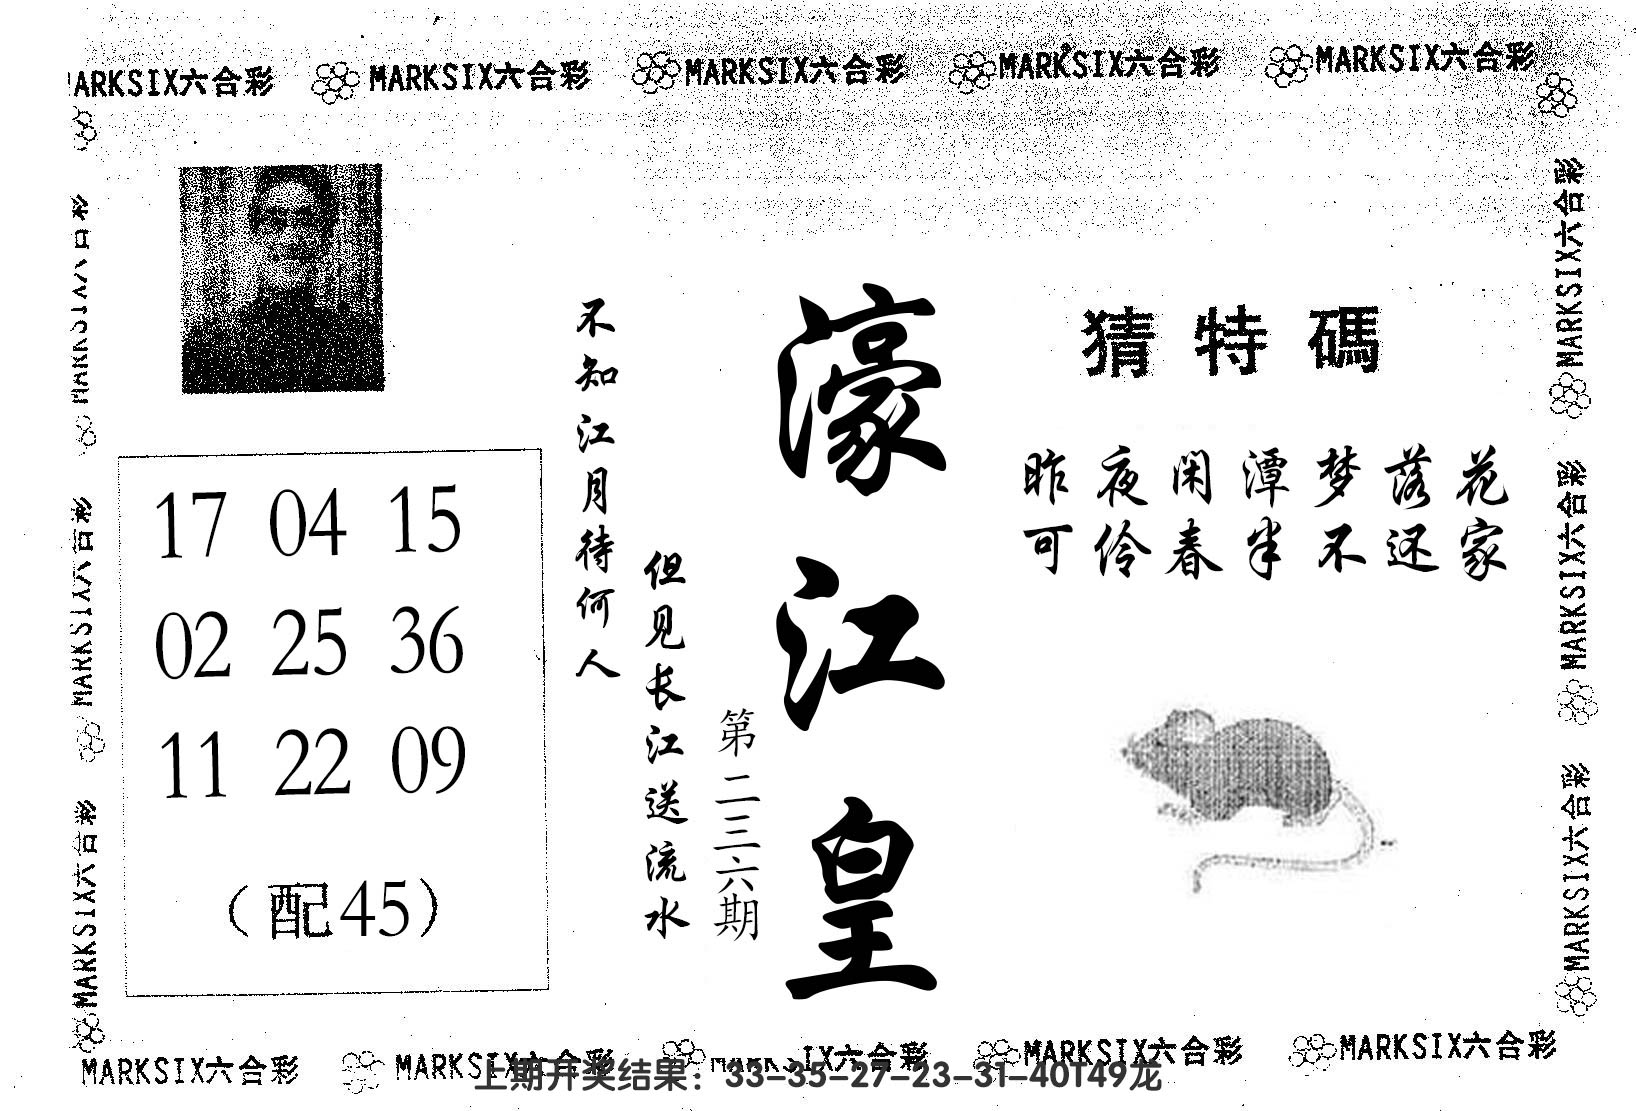 MARKSIX六合彩 MARKSIX六合彩 MARKSIX六合彩 MARKSIX六合彩 MARKSIX六合彩
MARKSIX六合彩
MARKSIX六合彩
MARKSIX六合彩
17 04 15
02 25 36
11 22 09
（配45）
不知江月待何人
但见长江送流水
第二三六期
濠江皇
猜特碼
昨夜闲潭梦落花
可伶春半不还家
MARKSIX六合彩
MARKSIX六合彩
MARKSIX六合彩
MARKSIX六合彩 MARKSIX六合彩 MARKSIX六合彩 MARKSIX六合彩 MARKSIX六合彩
上期开奖结果：33-35-27-23-31-40T49龙